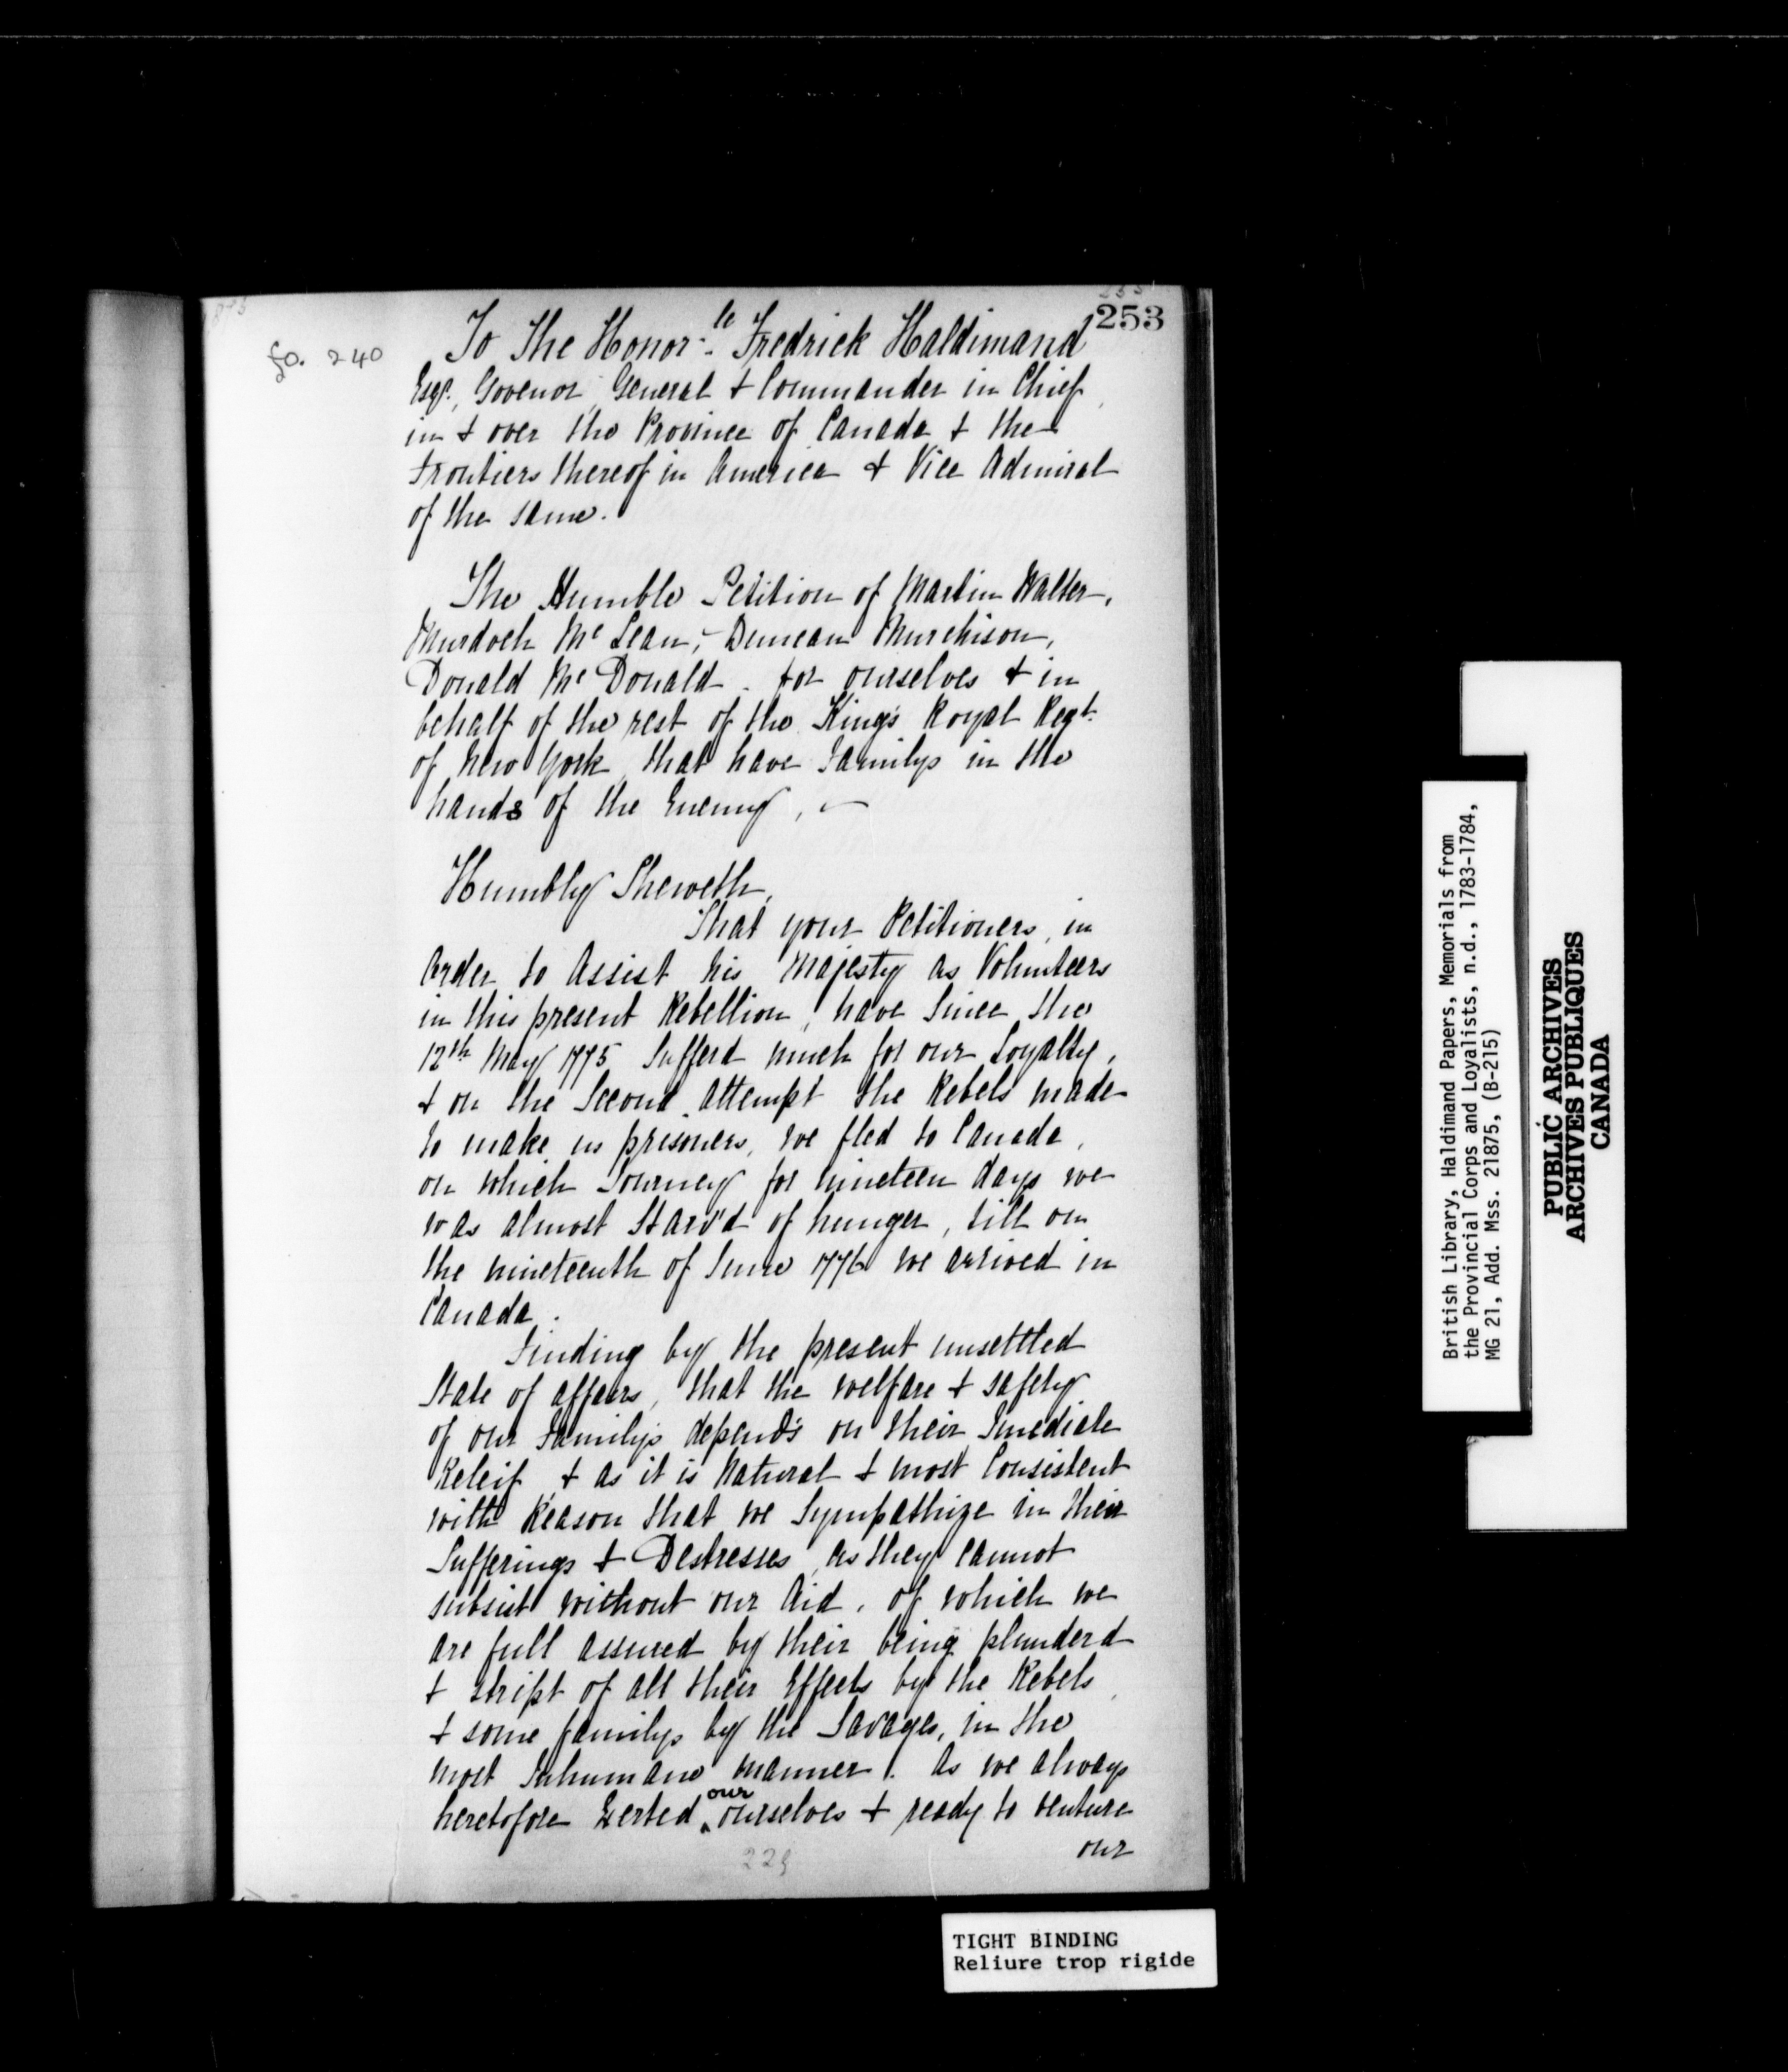 253
fo. 240
To The Honor.le Fredrick Haldimand
Esqr., Govenor General & Commander in Chief
in & over the Province of Canada & the
Frontiers thereof in America & Vice Admiral
of the same.
The Humble Petition of Martin Walter,
Murdoch Mc Lean, Duncan Murchison,
Donald Mc Donald. for ourselves & in
behalf of the rest of the King's Royal Regt.
of New York, that have familys in the
hands of the Enemy, —
Humbly Sheweth,
That your Petitioners, in
Order to Assist his Majesty as Volunteers
in this present Rebellion, have Since the
12th May 1775 Sufferd much for our Loyalty,
& on the Second attempt the Rebels made
to make us prisoners, we fled to Canada,
on which Journey for nineteen days we
was almost Starv'd of hunger, till on
the nineteenth of June 1776 we arrived in
Canada.
Finding by the present unsettled
State of affairs, that the welfare & safety
of our familys depends on their Imediate
Releif, & as it is Natural & most Consistent
with Reason that we Sympathize in their
Sufferings & Destresses, as they cannot
subsist without our Aid, of which we
are full assured by their being plunderd
& stript of all their Effects by the Rebels,
& some familys by the Savages, in the
most Inhumane manner. As we always
heretofore Exerted our ourselves & ready to venture
our
229
TIGHT BINDING
Reliure trop rigide
British Library, Haldimand Papers, Memorials from
the Provincial Corps and Loyalists, n.d., 1783-1784,
MG 21, Add. Mss. 21875, (B-215)
PUBLIC ARCHIVES
ARCHIVES PUBLIQUES
CANADA